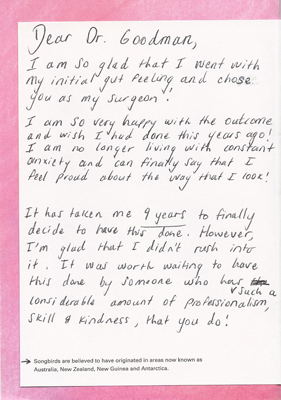 Dear Dr. Goodman,
I am so glad that I went with
my initial gut feeling and chose
you as my surgeon!
I am so very happy with the outcome
and wish I had done this years ago!
I am no longer living with constant
anxiety and can finally say that I
feel proud about the way that I look!
It has taken me 9 years to finally
decide to have this done. However,
I'm glad that I didn't rush into
it. It was worth waiting to have
this done by someone who has such a
considerable amount of professionalism,
skill & kindness, that you do!
→ Songbirds are believed to have originated in areas now known as
Australia, New Zealand, New Guinea and Antarctica.